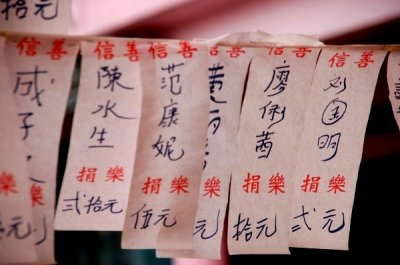 拾元
善信
樂捐
元
善信
陳水生
樂捐
弍拾元
善信
范康妮
樂捐
伍元
善信
黃
樂捐
元
善信
廖俐
樂捐
拾元
善信
刘国明
樂捐
弍元
善信